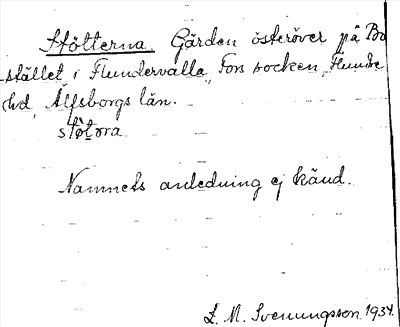 Stötterna. Gärden österöver på Bo
stället i Flundervalla, Fors socken, Flundre
hd, Älfsborgs län.
stötϖra
Namnets anledning ej känd.
L. M. Svenungsson 1934.